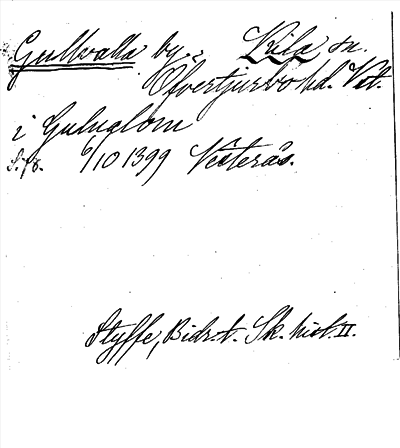 Gullvalla by. Kila sn.
Öfvertjurbo hd. Vst.
i Guluglom
S. 78. 6/10 1399 Västerås.
Styffe, Bidr. t. Sk. hist. II.